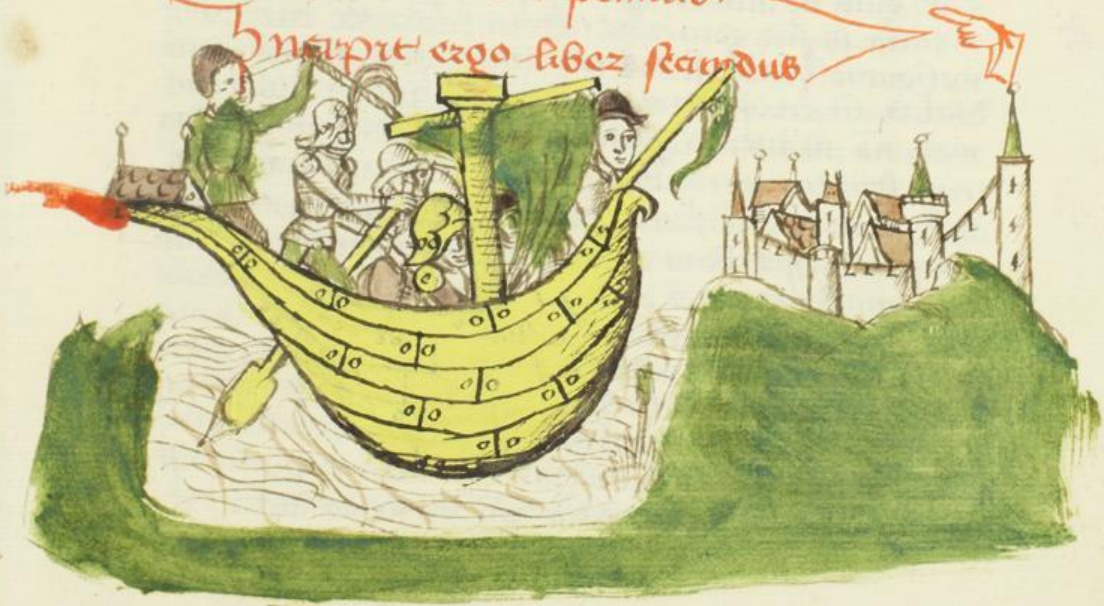 Incipit ergo liber secundus